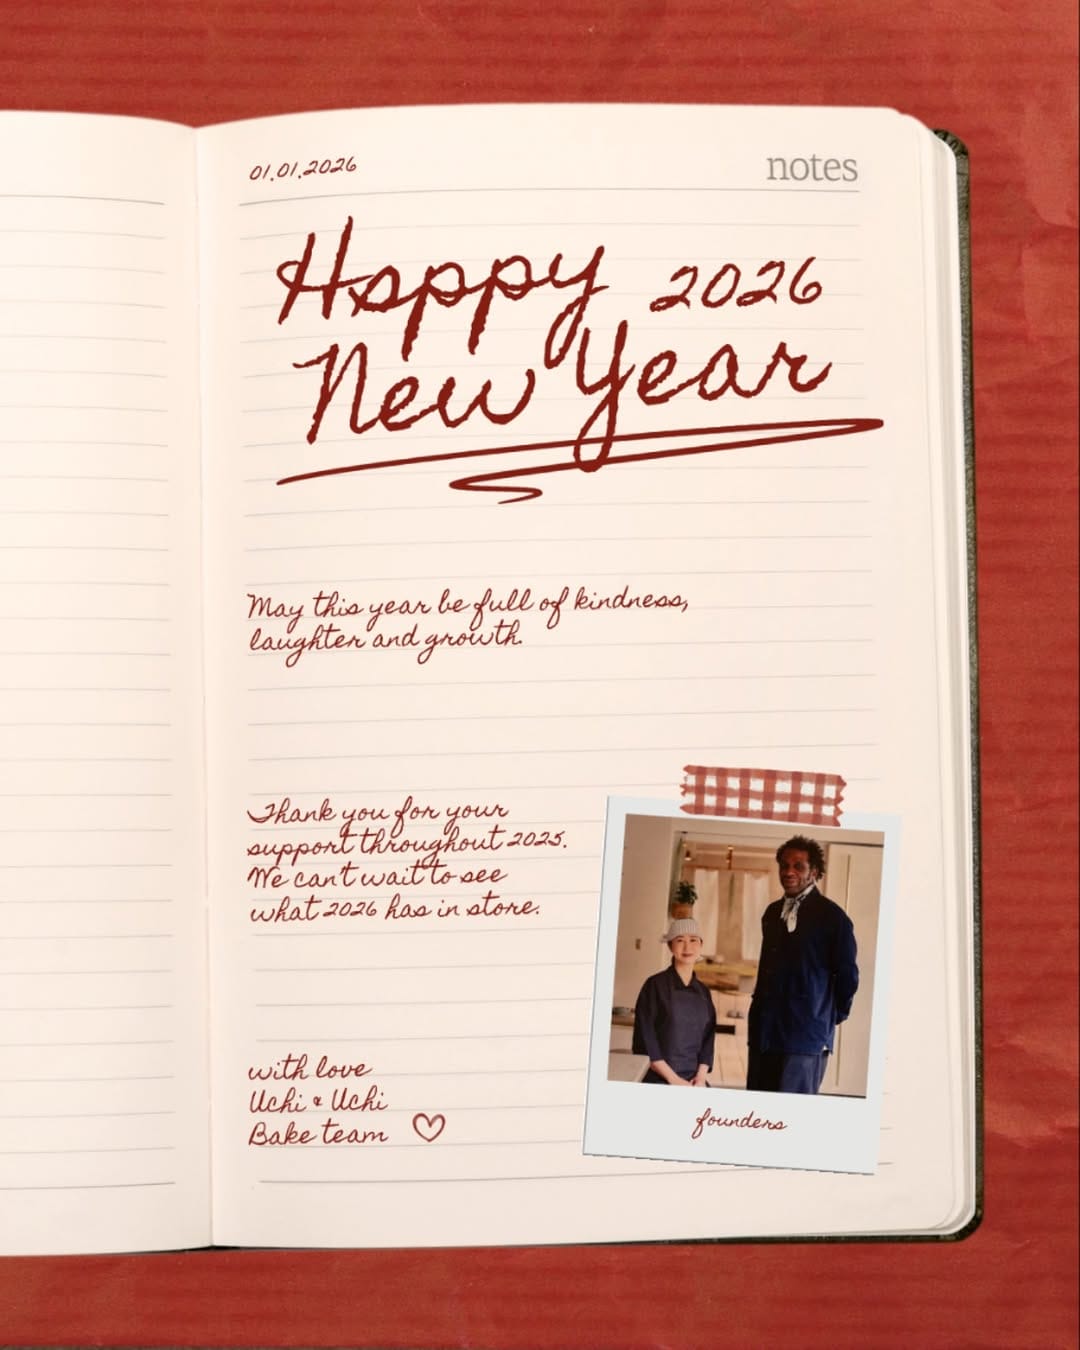 01.01.2026
notes
Happy 2026
New Year
May this year be full of kindness,
laughter and growth.
Thank you for your
support throughout 2025.
We can't wait to see
what 2026 has in store.
with love
Uchi & Uchi
Bake team
founders